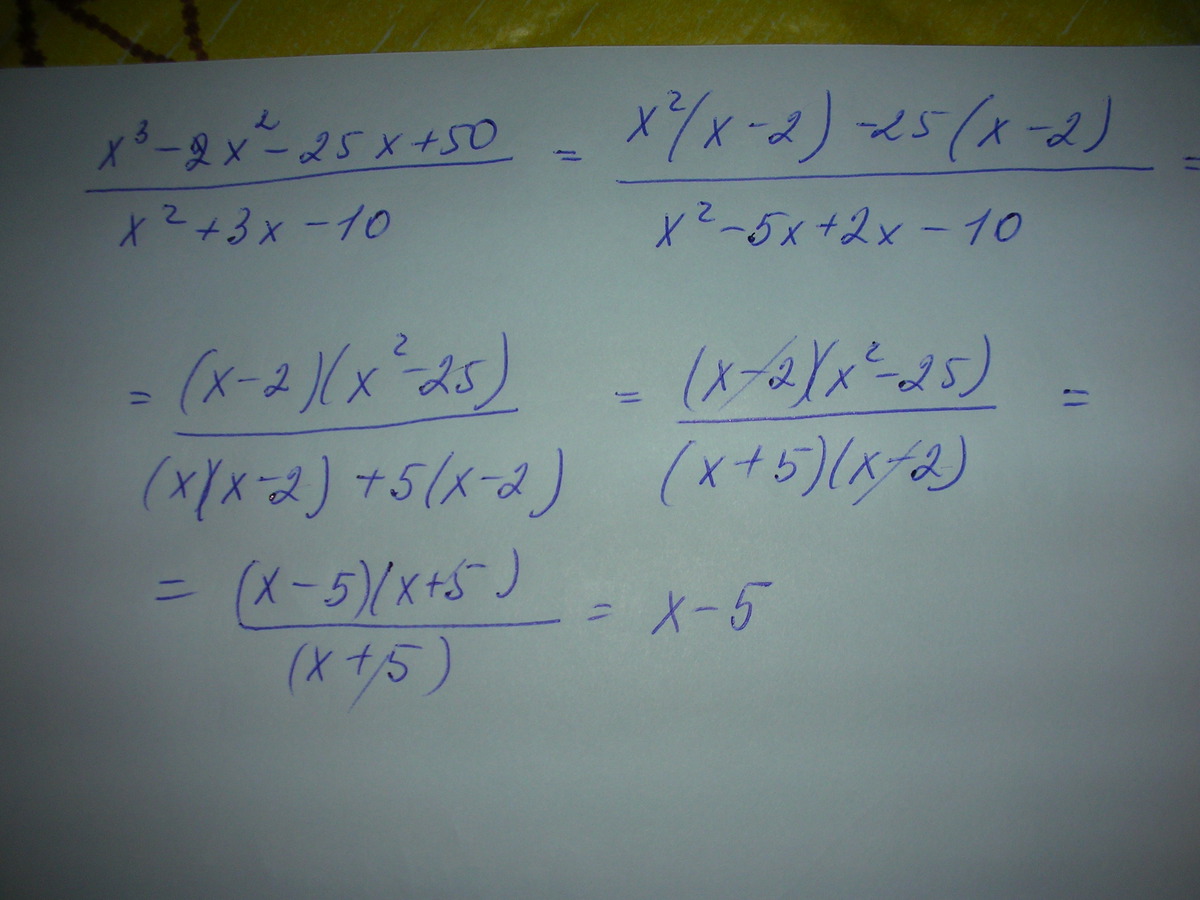 x³-2x²-25x+50 / x²+3x-10 = x²(x-2)-25(x-2) / x²-5x+2x-10 =
= (x-2)(x²-25) / (x)(x-2)+5(x-2) = (x-2)(x²-25) / (x+5)(x-2) =
= (x-5)(x+5) / (x+5) = x-5